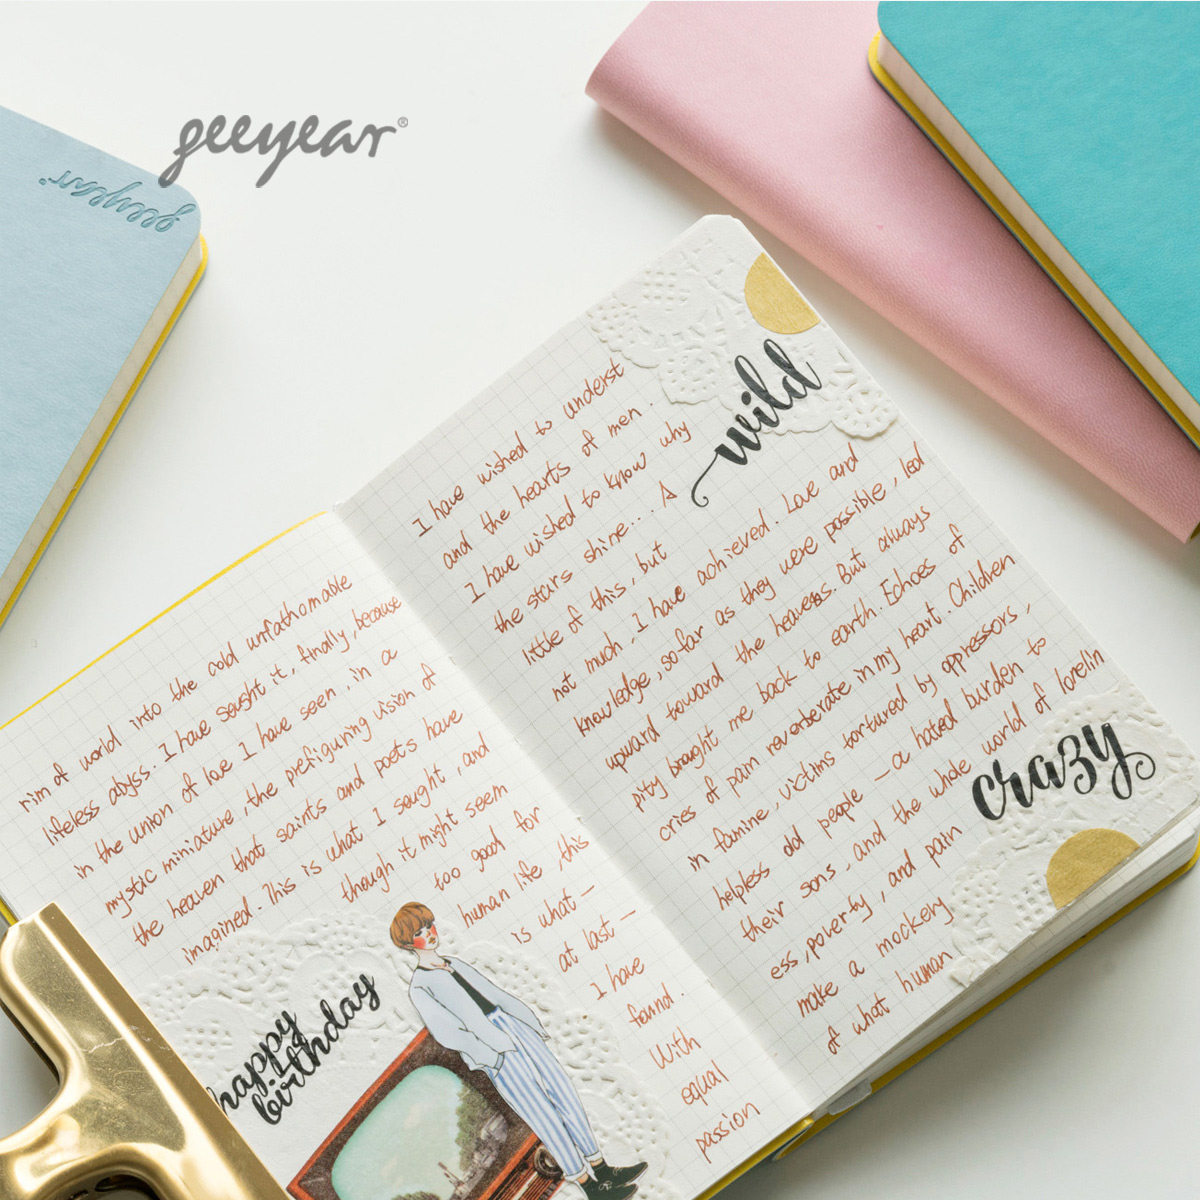 geeyear®
geeyear
rim of world into the cold unfathomable
lifeless abyss. I have sought it, finally, because
in the union of love I have seen, in a
mystic miniature, the prefiguring vision of
the heaven that saints and poets have
imagined. This is what I sought, and
though it might seem
too good for
human life, this
is what —
at last —
I have
found.
With
equal
passion
happy
birthday
I have wished to underst
and the hearts of men.
I have wished to know why
the stairs shine.... A
little of this, but
not much, I have achieved. Love and
knowledge, so far as they were possible, led
upward toward the heavens. But always
pity brought me back to earth. Echoes of
cries of pain reverberate in my heart. Children
in famine, victims tortured by oppressors,
helpless old people — a hated burden to
their sons, and the whole world of lonelin
ess, poverty, and pain
make a mockery
of what human
wild
crazy